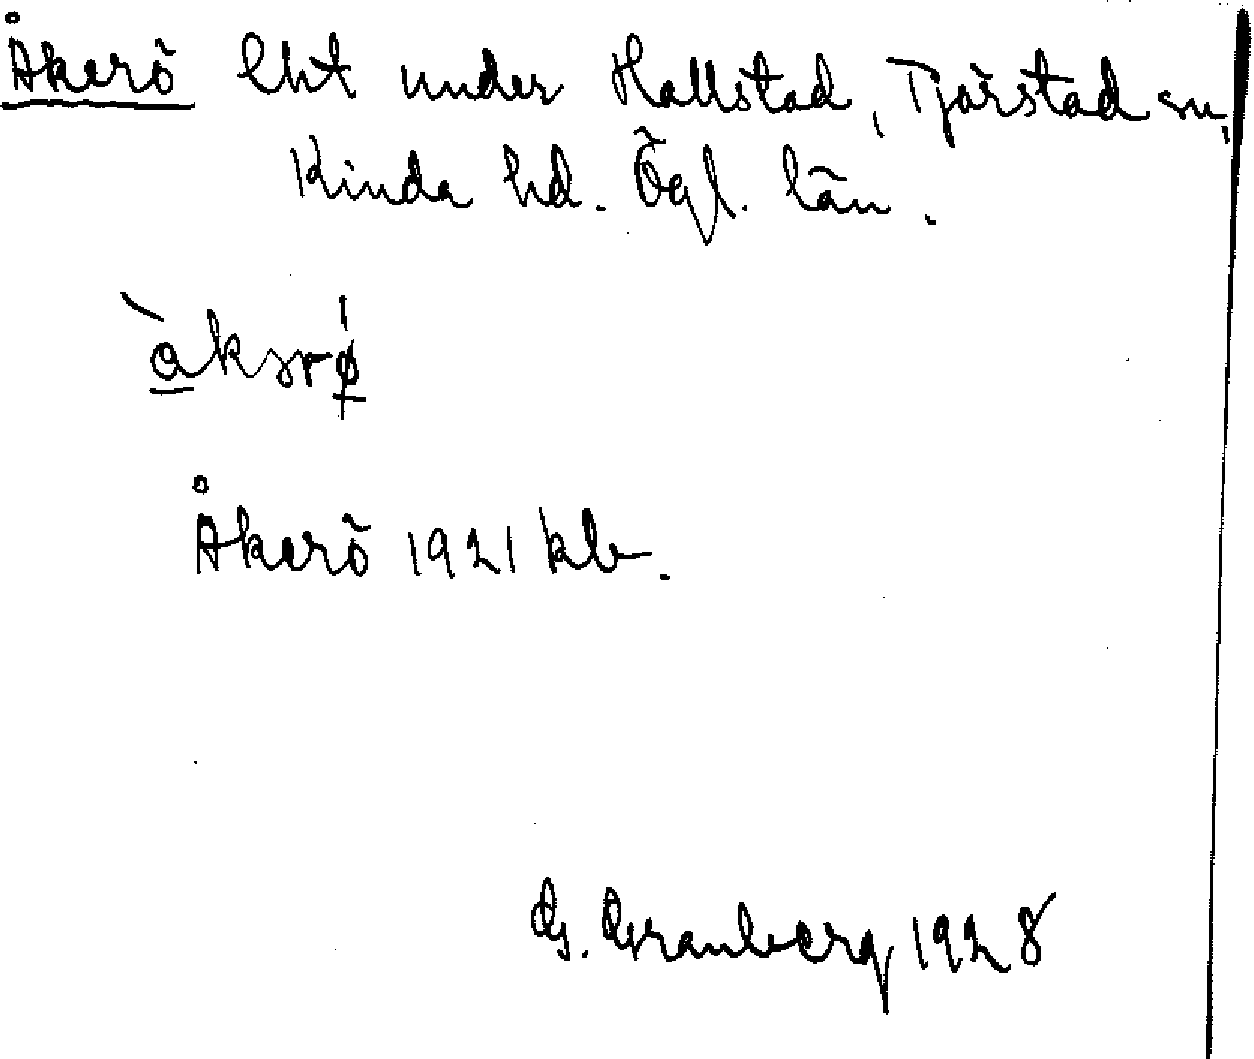 Åkerö lht under Hallstad, Tjärstad sn,
Kinda hd. Ögl. län.
Åkerö 1921 kb.
G. Granberg 1928